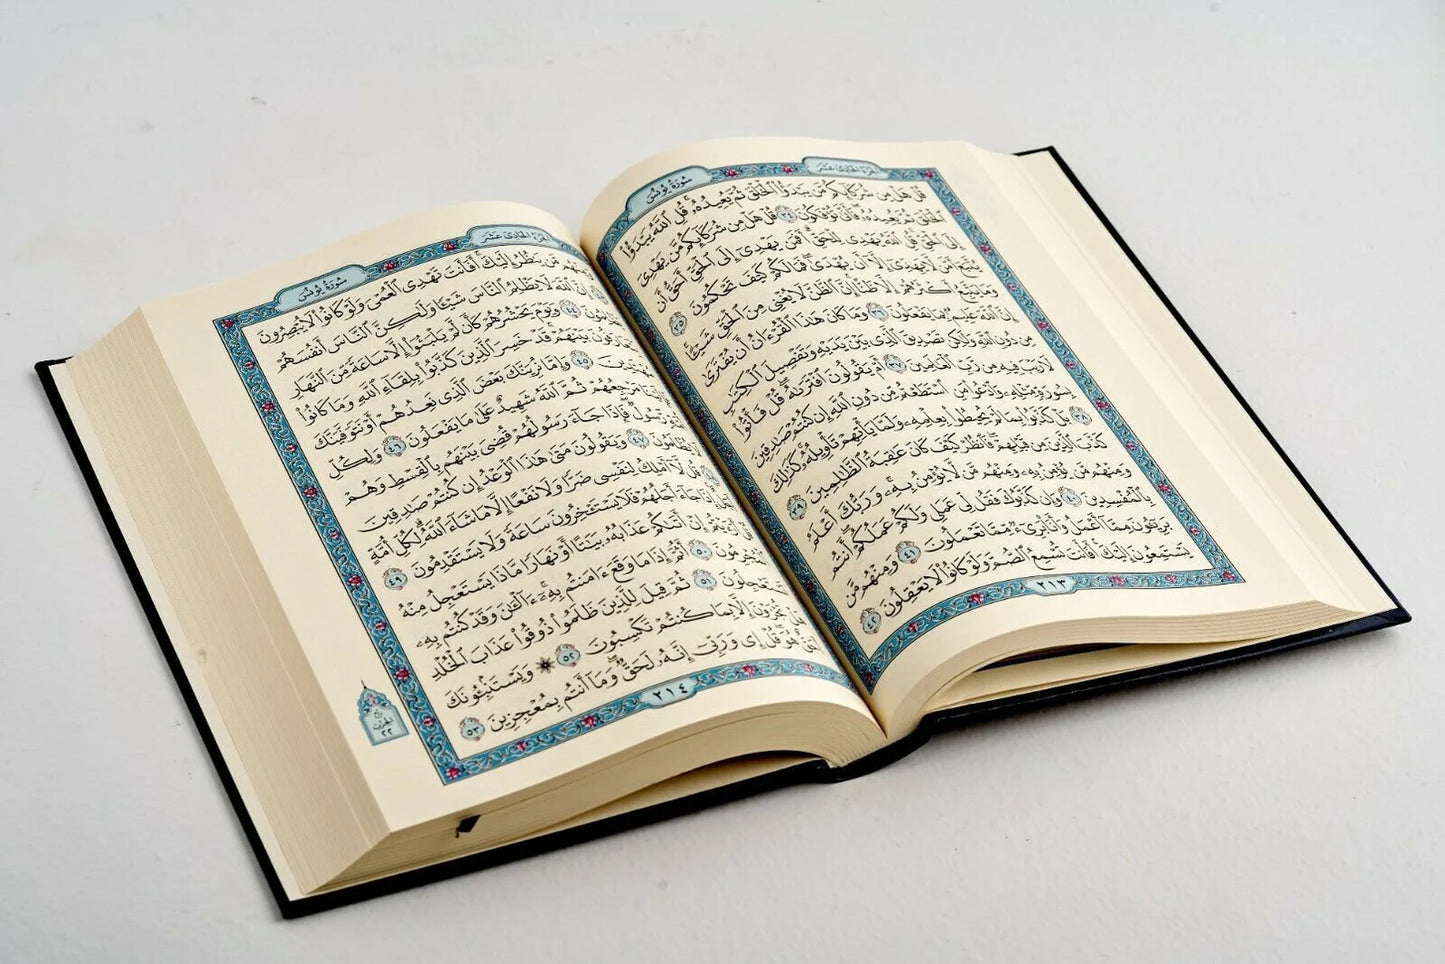 سُورَةُ يُونُسَ
الجُزْءُ الحَادِيَ عَشَرَ
قُلْ هَلْ مِن شُرَكَآئِكُم مَّن يَبْدَؤُا۟ ٱلْخَلْقَ ثُمَّ يُعِيدُهُۥ ۚ قُلِ ٱللَّهُ يَبْدَؤُا۟
ٱلْخَلْقَ ثُمَّ يُعِيدُهُۥ ۖ فَأَنَّىٰ تُؤْفَكُونَ ٣٤ قُلْ هَلْ مِن شُرَكَآئِكُم مَّن يَهْدِىٓ
إِلَى ٱلْحَقِّ ۚ قُلِ ٱللَّهُ يَهْدِى لِلْحَقِّ ۗ أَفَمَن يَهْدِىٓ إِلَى ٱلْحَقِّ أَحَقُّ أَن
يُتَّبَعَ أَمَّن لَّا يَهِدِّىٓ إِلَّآ أَن يُهْدَىٰ ۖ فَمَا لَكُمْ كَيْفَ تَحْكُمُونَ ٣٥
وَمَا يَتَّبِعُ أَكْثَرُهُمْ إِلَّا ظَنًّا ۚ إِنَّ ٱلظَّنَّ لَا يُغْنِى مِنَ ٱلْحَقِّ شَيْـًٔا ۚ
إِنَّ ٱللَّهَ عَلِيمٌۢ بِمَا يَفْعَلُونَ ٣٦ وَمَا كَانَ هَـٰذَا ٱلْقُرْءَانُ أَن يُفْتَرَىٰ
مِن دُونِ ٱللَّهِ وَلَـٰكِن تَصْدِيقَ ٱلَّذِى بَيْنَ يَدَيْهِ وَتَفْصِيلَ ٱلْكِتَـٰبِ
لَا رَيْبَ فِيهِ مِن رَّبِّ ٱلْعَـٰلَمِينَ ٣٧ أَمْ يَقُولُونَ ٱفْتَرَىٰهُ ۖ قُلْ فَأْتُوا۟
بِسُورَةٍ مِّثْلِهِۦ وَٱدْعُوا۟ مَنِ ٱسْتَطَعْتُم مِّن دُونِ ٱللَّهِ إِن كُنتُمْ صَـٰدِقِينَ
٣٨ بَلْ كَذَّبُوا۟ بِمَا لَمْ يُحِيطُوا۟ بِعِلْمِهِۦ وَلَمَّا يَأْتِهِمْ تَأْوِيلُهُۥ ۚ كَذَٰلِكَ
كَذَّبَ ٱلَّذِينَ مِن قَبْلِهِمْ ۖ فَٱنظُرْ كَيْفَ كَانَ عَـٰقِبَةُ ٱلظَّـٰلِمِينَ ٣٩
وَمِنْهُم مَّن يُؤْمِنُ بِهِۦ وَمِنْهُم مَّن لَّا يُؤْمِنُ بِهِۦ ۚ وَرَبُّكَ أَعْلَمُ
بِٱلْمُفْسِدِينَ ٤٠ وَإِن كَذَّبُوكَ فَقُل لِّى عَمَلِى وَلَكُمْ عَمَلُكُمْ ۖ أَنتُم
بَرِيٓـُٔونَ مِمَّآ أَعْمَلُ وَأَنَا۠ بَرِىٓءٌ مِّمَّا تَعْمَلُونَ ٤١ وَمِنْهُم مَّن
يَسْتَمِعُونَ إِلَيْكَ ۚ أَفَأَنتَ تُسْمِعُ ٱلصُّمَّ وَلَوْ كَانُوا۟ لَا يَعْقِلُونَ ٤٢
٢١٣
الجُزْءُ الحَادِيَ عَشَرَ
سُورَةُ يُونُسَ
مَّن يَنظُرُ إِلَيْكَ ۚ أَفَأَنتَ تَهْدِى ٱلْعُمْىَ وَلَوْ كَانُوا۟ لَا يُبْصِرُونَ
إِنَّ ٱللَّهَ لَا يَظْلِمُ ٱلنَّاسَ شَيْـًٔا وَلَـٰكِنَّ ٱلنَّاسَ أَنفُسَهُمْ
٤٤ وَيَوْمَ يَحْشُرُهُمْ كَأَن لَّمْ يَلْبَثُوٓا۟ إِلَّا سَاعَةً مِّنَ ٱلنَّهَارِ
بَيْنَهُمْ ۚ قَدْ خَسِرَ ٱلَّذِينَ كَذَّبُوا۟ بِلِقَآءِ ٱللَّهِ وَمَا كَانُوا۟
٤٥ وَإِمَّا نُرِيَنَّكَ بَعْضَ ٱلَّذِى نَعِدُهُمْ أَوْ نَتَوَفَّيَنَّكَ
مَرْجِعُهُمْ ثُمَّ ٱللَّهُ شَهِيدٌ عَلَىٰ مَا يَفْعَلُونَ ٤٦ وَلِكُلِّ
رَّسُولٌ ۖ فَإِذَا جَآءَ رَسُولُهُمْ قُضِىَ بَيْنَهُم بِٱلْقِسْطِ وَهُمْ
يُظْلَمُونَ ٤٧ وَيَقُولُونَ مَتَىٰ هَـٰذَا ٱلْوَعْدُ إِن كُنتُمْ صَـٰدِقِينَ
قُل لَّآ أَمْلِكُ لِنَفْسِى ضَرًّا وَلَا نَفْعًا إِلَّا مَا شَآءَ ٱللَّهُ ۗ لِكُلِّ أُمَّةٍ
أَجَلٌ ۚ إِذَا جَآءَ أَجَلُهُمْ فَلَا يَسْتَـْٔخِرُونَ سَاعَةً ۖ وَلَا يَسْتَقْدِمُونَ ٤٩
قُلْ أَرَءَيْتُمْ إِنْ أَتَىٰكُمْ عَذَابُهُۥ بَيَـٰتًا أَوْ نَهَارًا مَّاذَا يَسْتَعْجِلُ مِنْهُ
ٱلْمُجْرِمُونَ ٥٠ أَثُمَّ إِذَا مَا وَقَعَ ءَامَنتُم بِهِۦٓ ۚ ءَآلْـَٔـٰنَ وَقَدْ كُنتُم بِهِۦ
تَسْتَعْجِلُونَ ٥١ ثُمَّ قِيلَ لِلَّذِينَ ظَلَمُوا۟ ذُوقُوا۟ عَذَابَ ٱلْخُلْدِ
هَلْ تُجْزَوْنَ إِلَّا بِمَا كُنتُمْ تَكْسِبُونَ ٥٢ ۞ وَيَسْتَنۢبِـُٔونَكَ
أَحَقٌّ هُوَ ۖ قُلْ إِى وَرَبِّىٓ إِنَّهُۥ لَحَقٌّ ۖ وَمَآ أَنتُم بِمُعْجِزِينَ ٥٣
٢١٤
الحزب
٢٢